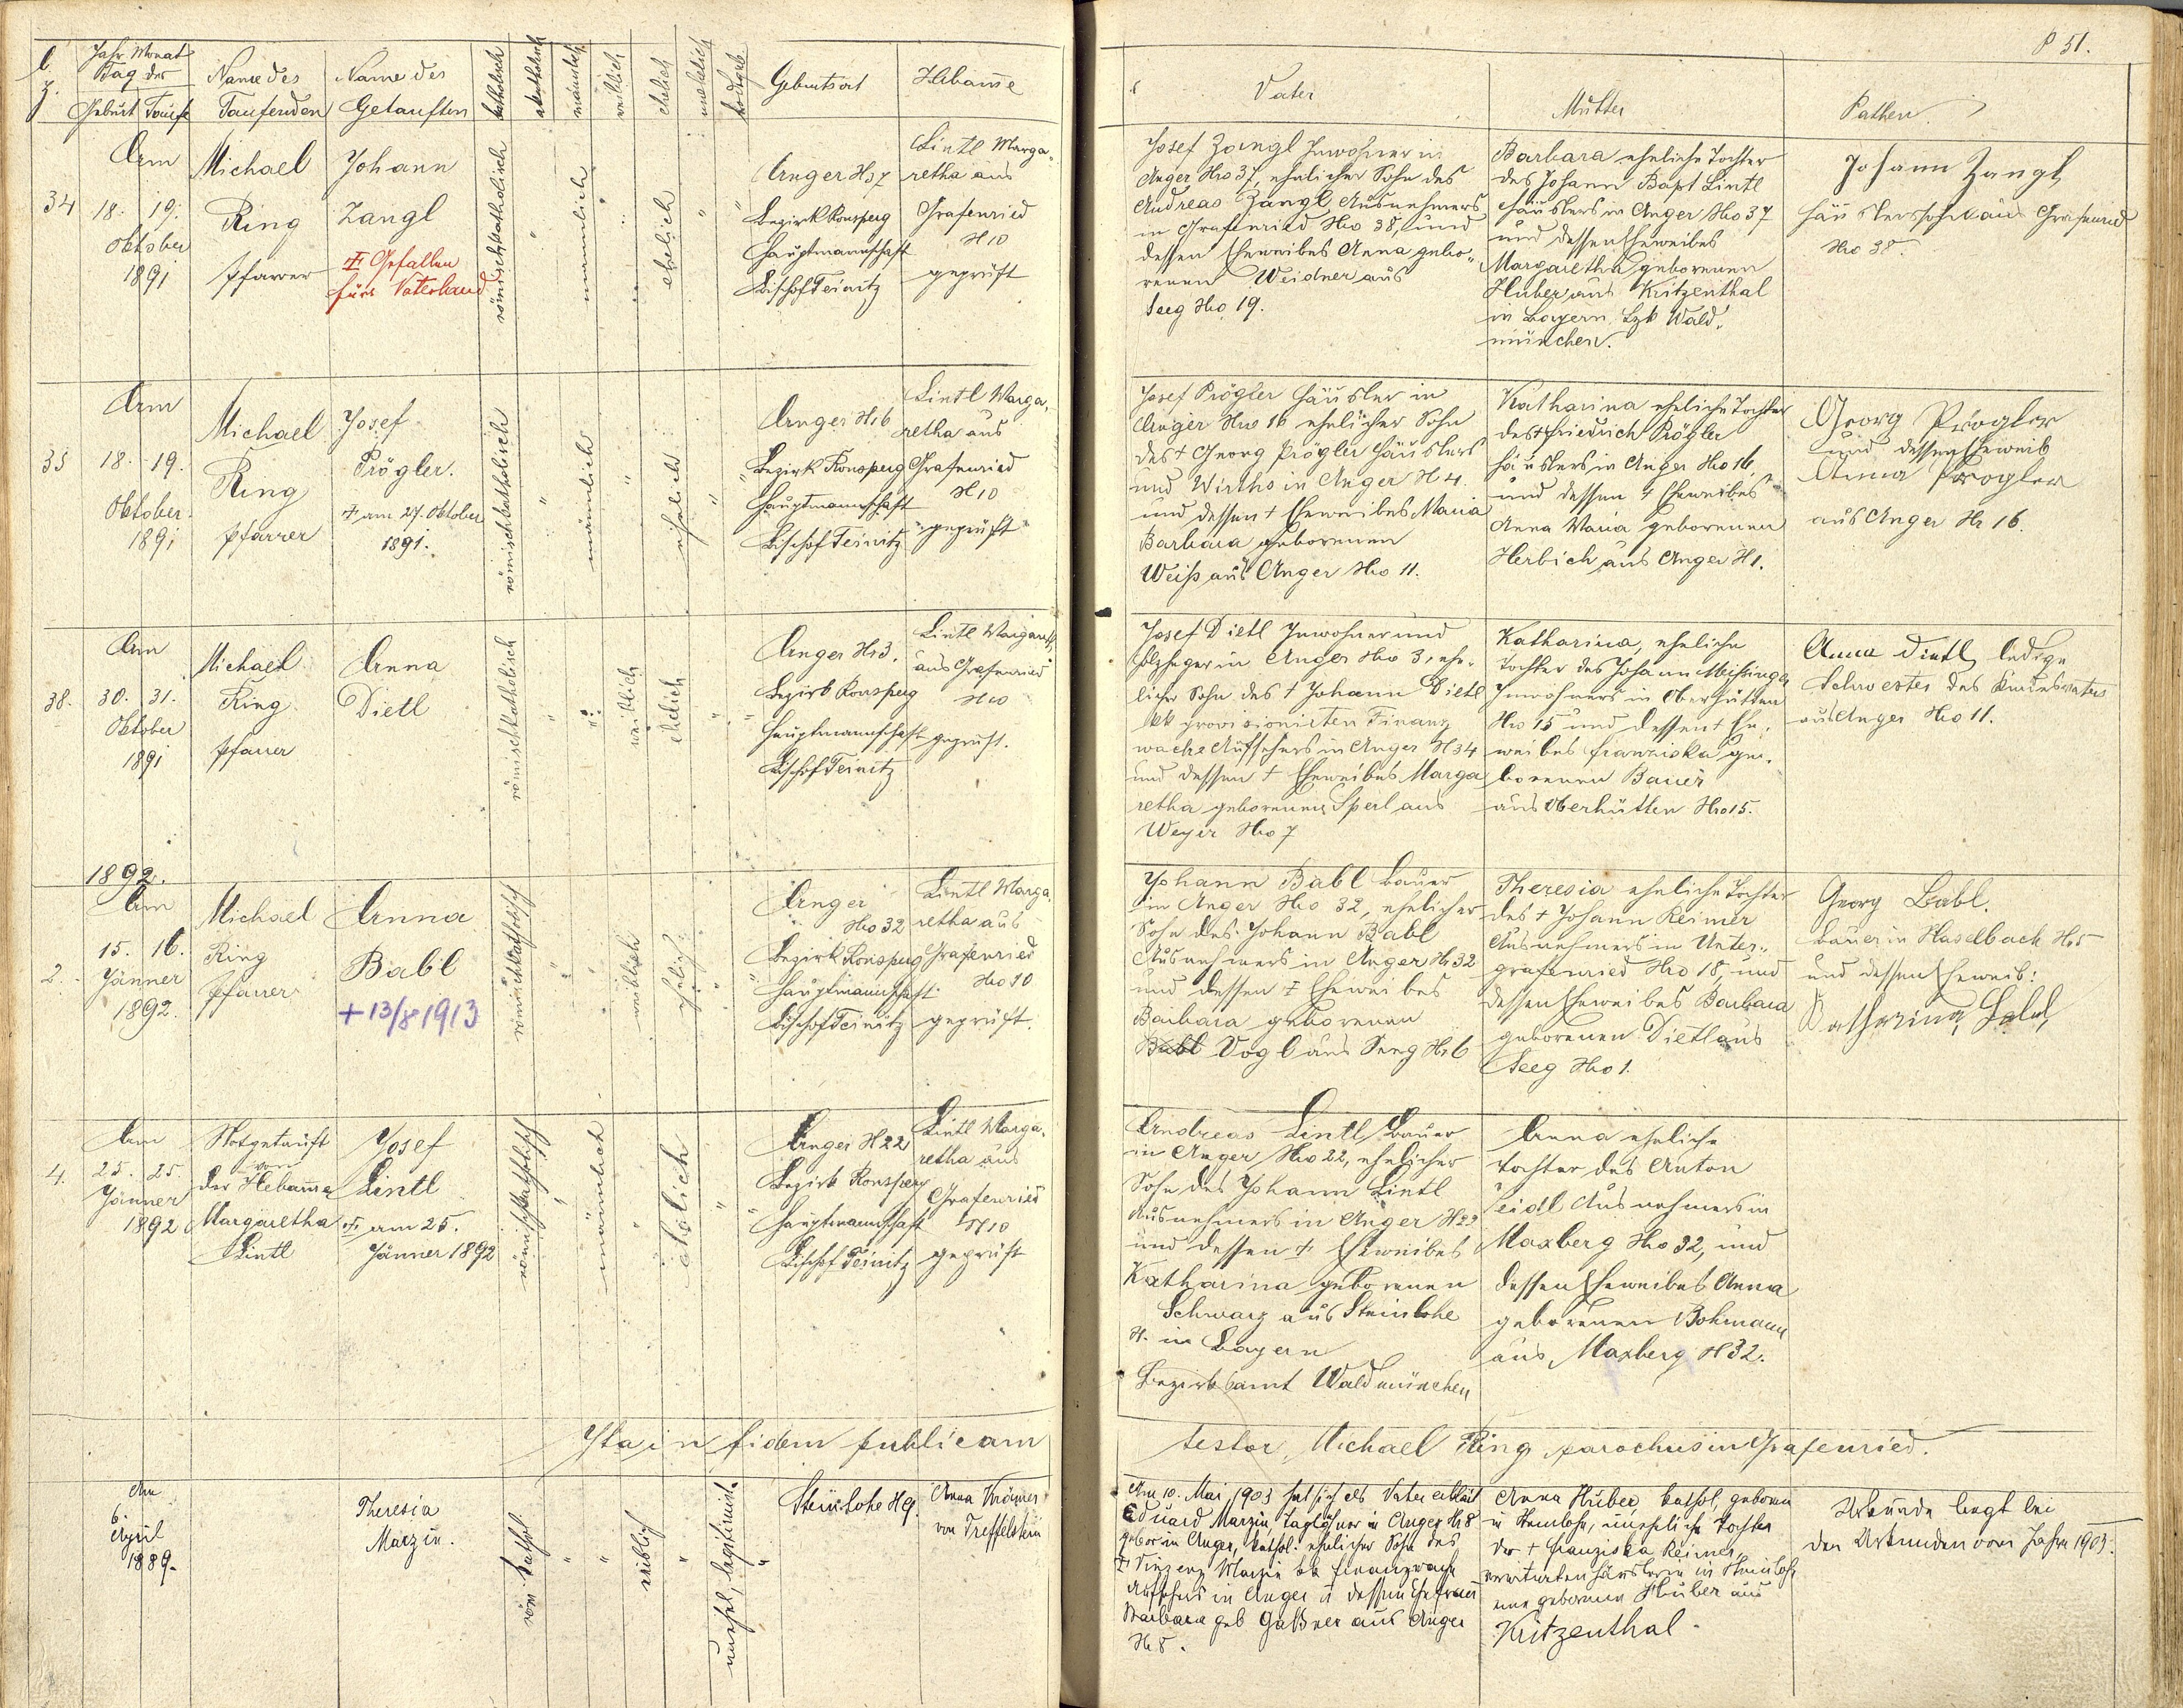 P 51.
L.
Z.
Jahr Monat
Tag der
Geburt Taufe
Name des
Taufenden
Name des
Getauften
katholisch
akatholisch
männlich
weiblich
ehelich
unehelich
todtgeb.
Geburtsort
Hebam̄e
Vater
Mutter
Pathen
34
Am
18. 19.
Oktober
1891
Michael
Ring
Pfarrer
Johann
Zangl
Gefallen
fürs Vaterland
römischkatholisch
männlich
ehelich
Anger N37
Bezirk Ronsperg
Hauptmannschaft
Bischof Teinitz
Lintl Marga-
retha aus
Grafenried
N10
geprüft
Josef Zangl Inwohner in
Anger Nro 37, ehelicher Sohn des
Andreas Zangl Ausnehmers
in Grafenried Nro 38, und
dessen Eheweibes Anna gebo-
renen Weidner aus
Seeg Nro 19.
Barbara eheliche Tochter
des Johann Bapt Lintl
Häuslers in Anger Nro 37
und dessen Eheweibes
Margaretha geborenen
Huber aus Kritzenthal
in Bayern Bzk Wald-
münchen.
Johann Zangl
Häuslerssohn aus Grafenried
Nro 38.
35
Am
18. 19.
Oktober
1891
Michael
Ring
Pfarrer
Josef
Prögler.
† am 27. Oktober
1891.
römischkatholisch
männlich
ehelich
Anger N16
Bezirk Ronsperg
Hauptmannschaft
Bischof Teinitz
Lintl Marga-
retha aus
Grafenried
N10
geprüft
Josef Prögler Häusler in
Anger Nro 16 ehelicher Sohn
des † Georg Prögler Häuslers
und Wirths in Anger N 4.
und dessen † Eheweibes Maria
Barbara geborenen
Weiß aus Anger Nro 11.
Katharina eheliche Tochter
des † Friedrich Prögler
Häuslers in Anger Nro 16,
und dessen † Eheweibes
Anna Maria geborenen
Herbich aus Anger N1.
Georg Prögler
und dessen Eheweib
Anna Progler
aus Anger Nr 16.
38.
Am
30. 31.
Oktober
1891
Michael
Ring
Pfarrer
Anna
Dietl
römischkatholisch
weiblich
ehelich
Anger N3.
Bezirk Ronsperg
Hauptmannschaft
Bischof Teinitz
Lintl Margareth
aus Grafenried
N10
geprüft.
Josef Dietl Inwohner und
in Anger Nro 3, ehe-
licher Sohn des † Johann Dietl
kk provisionirten Finanz
wache Aufsehers in Anger N34
und dessen † Eheweibes Marga
retha geborenen Sperl aus
Weyer Nro 7
Katharina, eheliche
Tochter des Johann Meisinger
Inwohners in Oberhütten
Nro 15 und dessen † Ehe-
weibes Franziska ge-
borenen Bauer
aus Oberhütten Nro 15.
Anna Dietl ledige
Schwester des Kindesvaters
aus Anger Nro 11.
1892.
2.
Am
15. 16.
Jänner
1892.
Michael
Ring
Pfarrer
Anna
Babl
+ 13/8 1913
römischkatholisch
weiblich
ehelich
Anger
Nro 32
Bezirk Ronsperg
Hauptmannschaft
Bischof Teinitz
Lintl Marga
retha aus
Grafenried
Nro 10
geprüft.
Johann Babl Bauer
in Anger Nro 32, ehelicher
Sohn des Johann Babl
Ausnehmers in Anger N 32
und dessen † Eheweibes
Barbara geborenen
Babl Vogl aus Seeg N 6
Theresia eheliche Tochter
des † Johann Reimer
Ausnehmers in Unter-
grafenried Nro 18, und
dessen Eheweibes Barbara
geborenen Dietl aus
Seeg Nro 1.
Georg Babl.
Bauer in Haselbach N5
und dessen Eheweib:
Katharina Babl
4.
Am
25. 25.
Jänner
1892
Notgetauft
von
der Hebam̄e
Margaretha
Lintl
Josef
Lintl
† am 25.
Jänner 1892
römischkatholisch
männlich
ehelich
Anger N22
Bezirk Ronsperg
Hauptmannschaft
Bischof Teinitz
Lintl Marga-
retha aus
Grafenried
N10
geprüft
Andreas Lintl Bauer
in Anger Nro 22, ehelicher
Sohn des Johann Lintl
Ausnehmers in Anger N22
und dessen † Eheweibes
Katharina geborenen
Schwarz aus Steinlohe
N. in Bayern
Bezirksamt Waldmünchen
Anna eheliche
Tochter des Anton
Seidl Ausnehmers in
Maxberg Nro 32, und
dessen Eheweibes Anna
geborenen Bohmann
aus Maxberg N 32.
Ita in fidem publicam
testor, Michael Ring parochus in Grafenried.
Am
6.
April
1889.
Theresia
Marzin.
röm. kathol.
weiblich
unehel, legitimirt.
Steinlohe N9.
Anna Krämer
von Treffelstein
Am 10. Mai 1903 hat sich als Vater erklärt
Eduard Marzin, Taglöhner in Anger N8
gebor in Anger, kathol. ehelicher Sohn des
† Vinzenz Marzin kk Finanzwach
Aufsehers in Anger u dessen Ehefrau
Barbara geb Gaßner aus Anger
N 8.
Anna Huber, kathol, geboren
in Steinlohe, uneheliche Tochter
der † Franziska Reimer,
in Steinlohe
geborenen Huber aus
Kritzenthal.
Urkunde liegt bei
den Urkunden vom Jahre 1903.